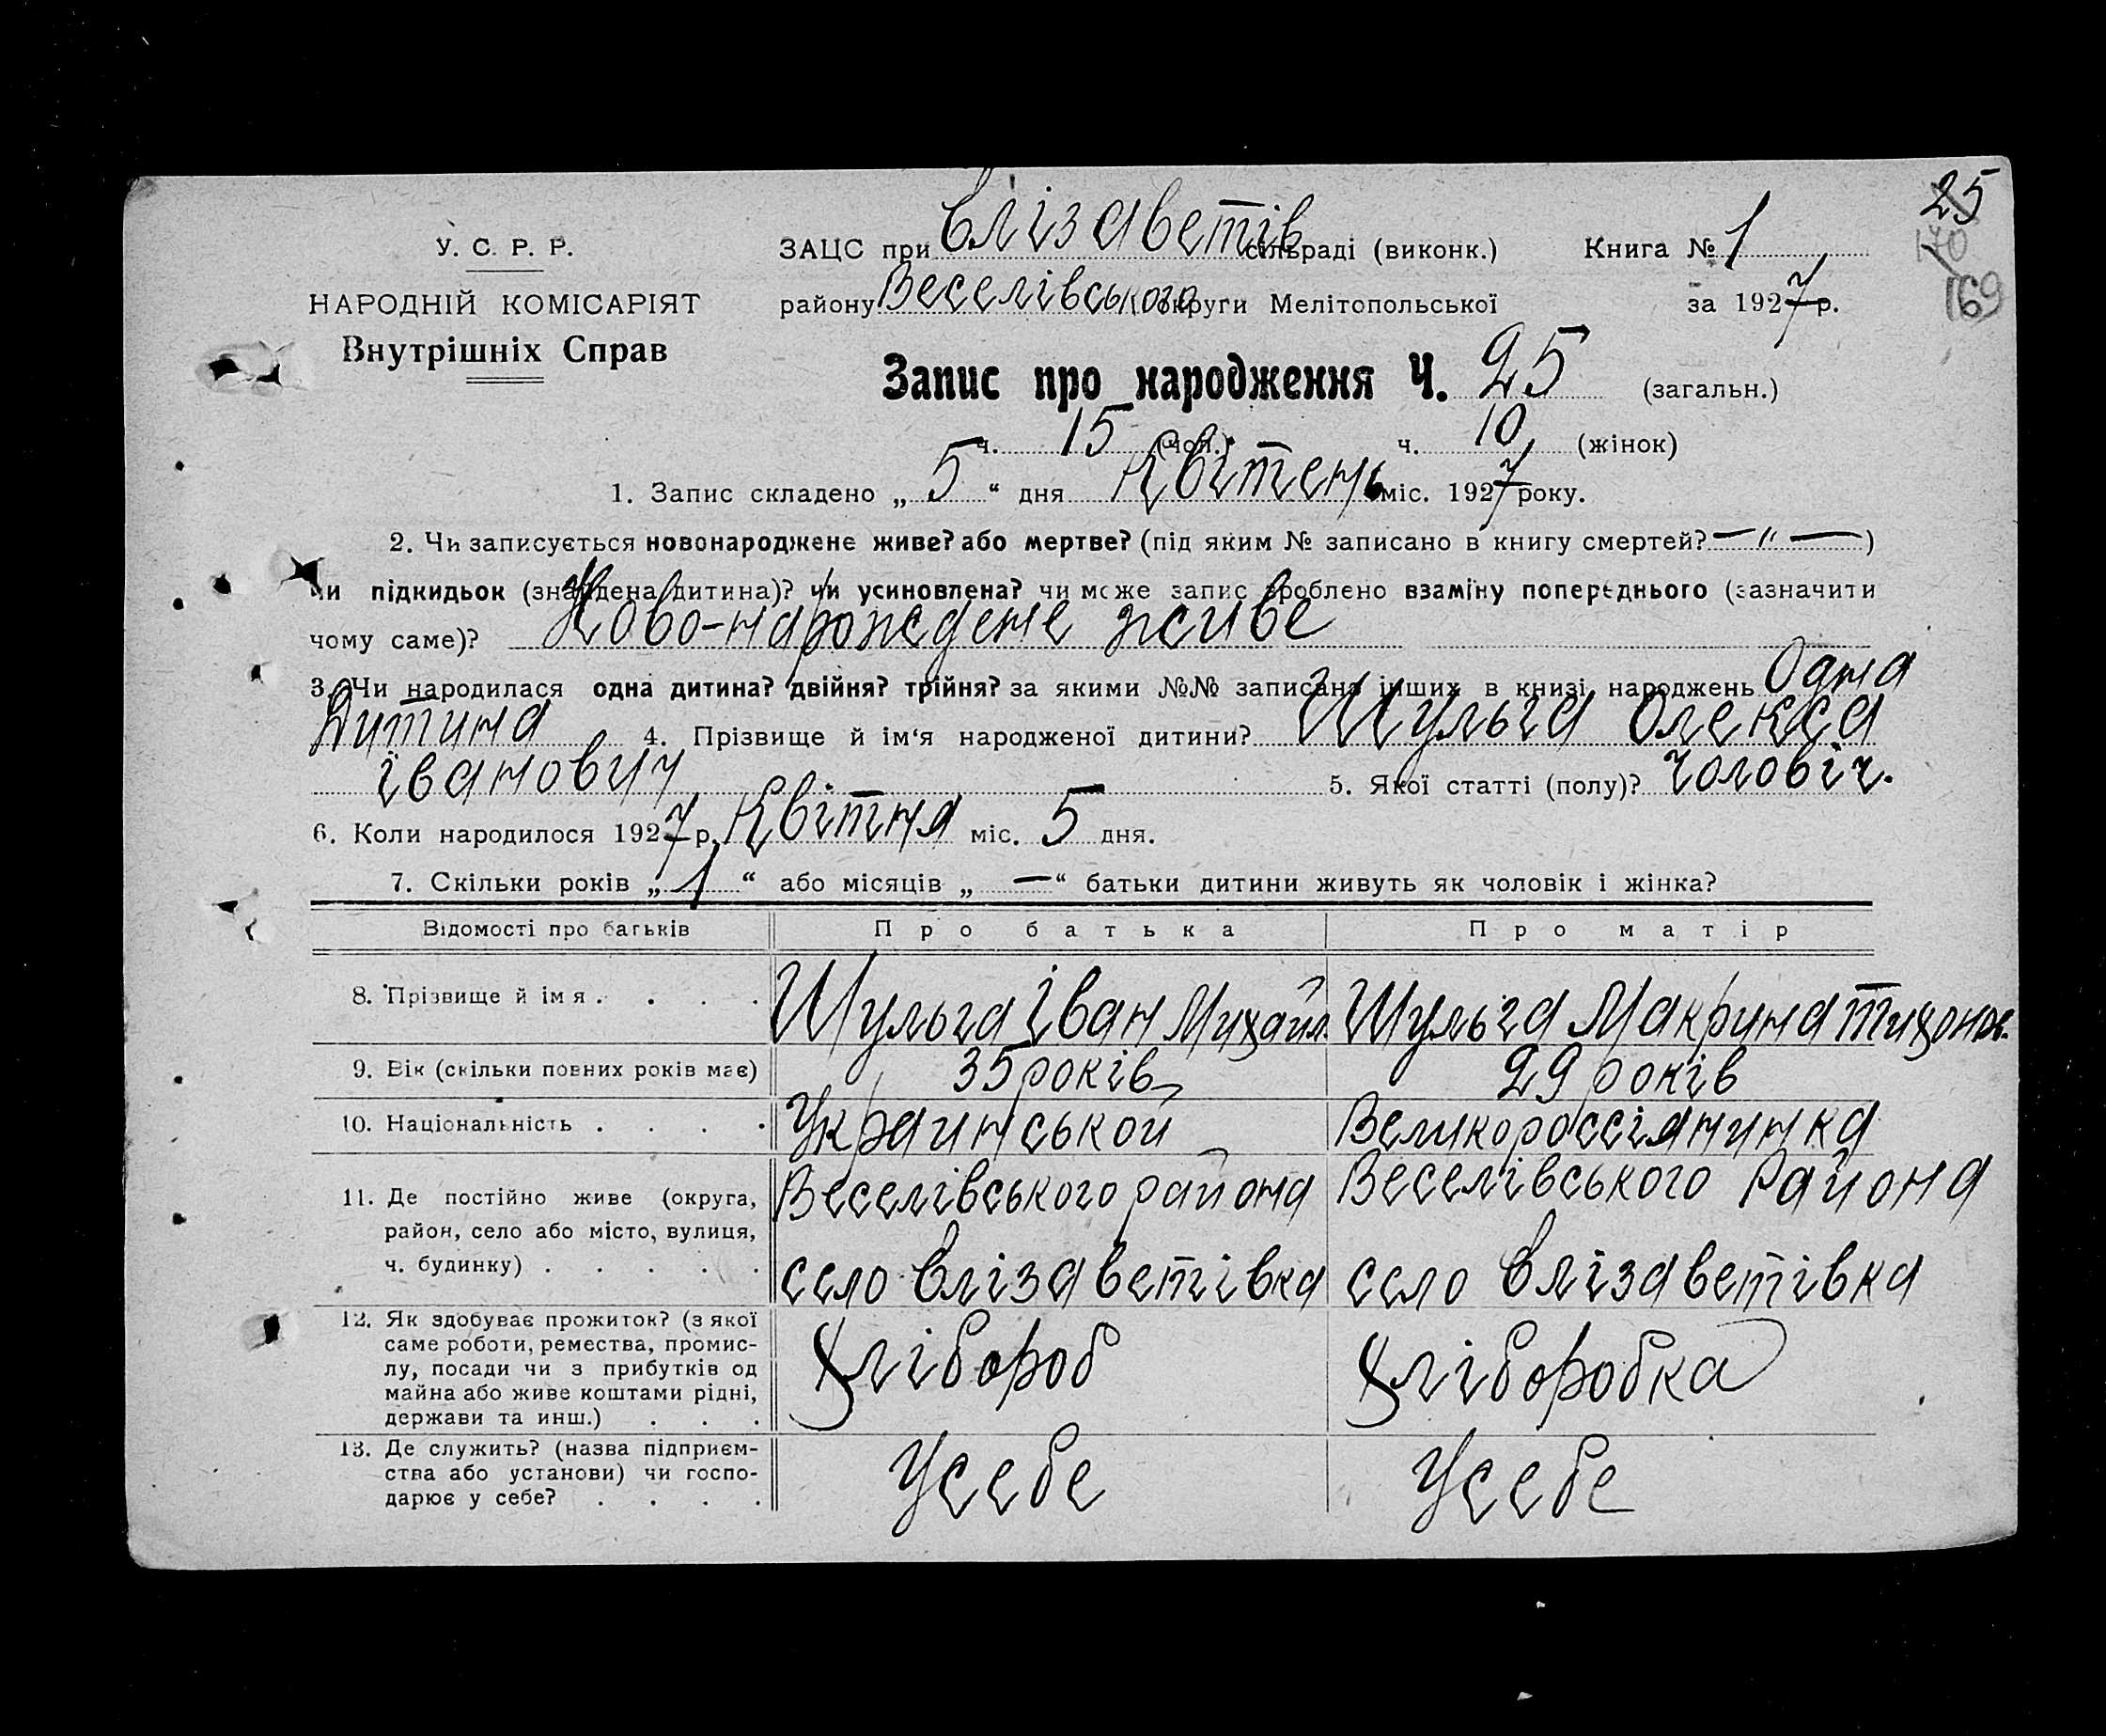 25
170
169
У. С. Р. Р.
НАРОДНІЙ КОМІСАРІЯТ
Внутрішніх Справ
ЗАЦС при Єлізаветів сільраді (виконк.) Книга № 1
району Веселівського округи Мелітопольської за 1927 р.
Запис про народження Ч. 25 (загальн.)
ч. 15 (чол.) ч. 10 (жінок)
1. Запис складено „ 5 “ дня Квітень міс. 1927 року.
2. Чи записується новонароджене живе? або мертве? (під яким № записано в книгу смертей? — „ — )
чи підкидьок (знайдена дитина)? чи усиновлена? чи може запис зроблено взаміну попереднього (зазначити
чому саме)? Ново-нарождене живе
3. Чи народилася одна дитина? двійня? трійня? за якими №№ записана інших в книзі народжень Одна
Дитина 4. Прізвище й ім‘я народженої дитини? Шульга Олекса
Іванович 5. Якої статті (полу)? чоловіч.
6. Коли народилося 1927 р. Квітня міс. 5 дня.
7. Скільки років „ 1 “ або місяців „ — “ батьки дитини живуть як чоловік і жінка?
Відомості про батьків Про батька Про матір
8. Прізвище й імя . . . . Шульга Іван Михайл. Шульга Макрина Тихонов.
9. Вік (скільки повних років має) 35 років 29 років
10. Національність . . . . Украинськой Великороссіянинка
11. Де постійно живе (округа, Веселівського района Веселівського Района
район, село або місто, вулиця,
ч. будинку) . . . . . село Єлізаветівка село Єлізаветівка
12. Як здобуває прожиток? (з якої
саме роботи, ремества, промис-
лу, посади чи з прибутків од Хлібороб Хліборобка
майна або живе коштами рідні,
держави та инш.) . . .
13. Де служить? (назва підприєм-
ства або установи) чи госпо- Усебе Усебе
дарює у себе? . . . .